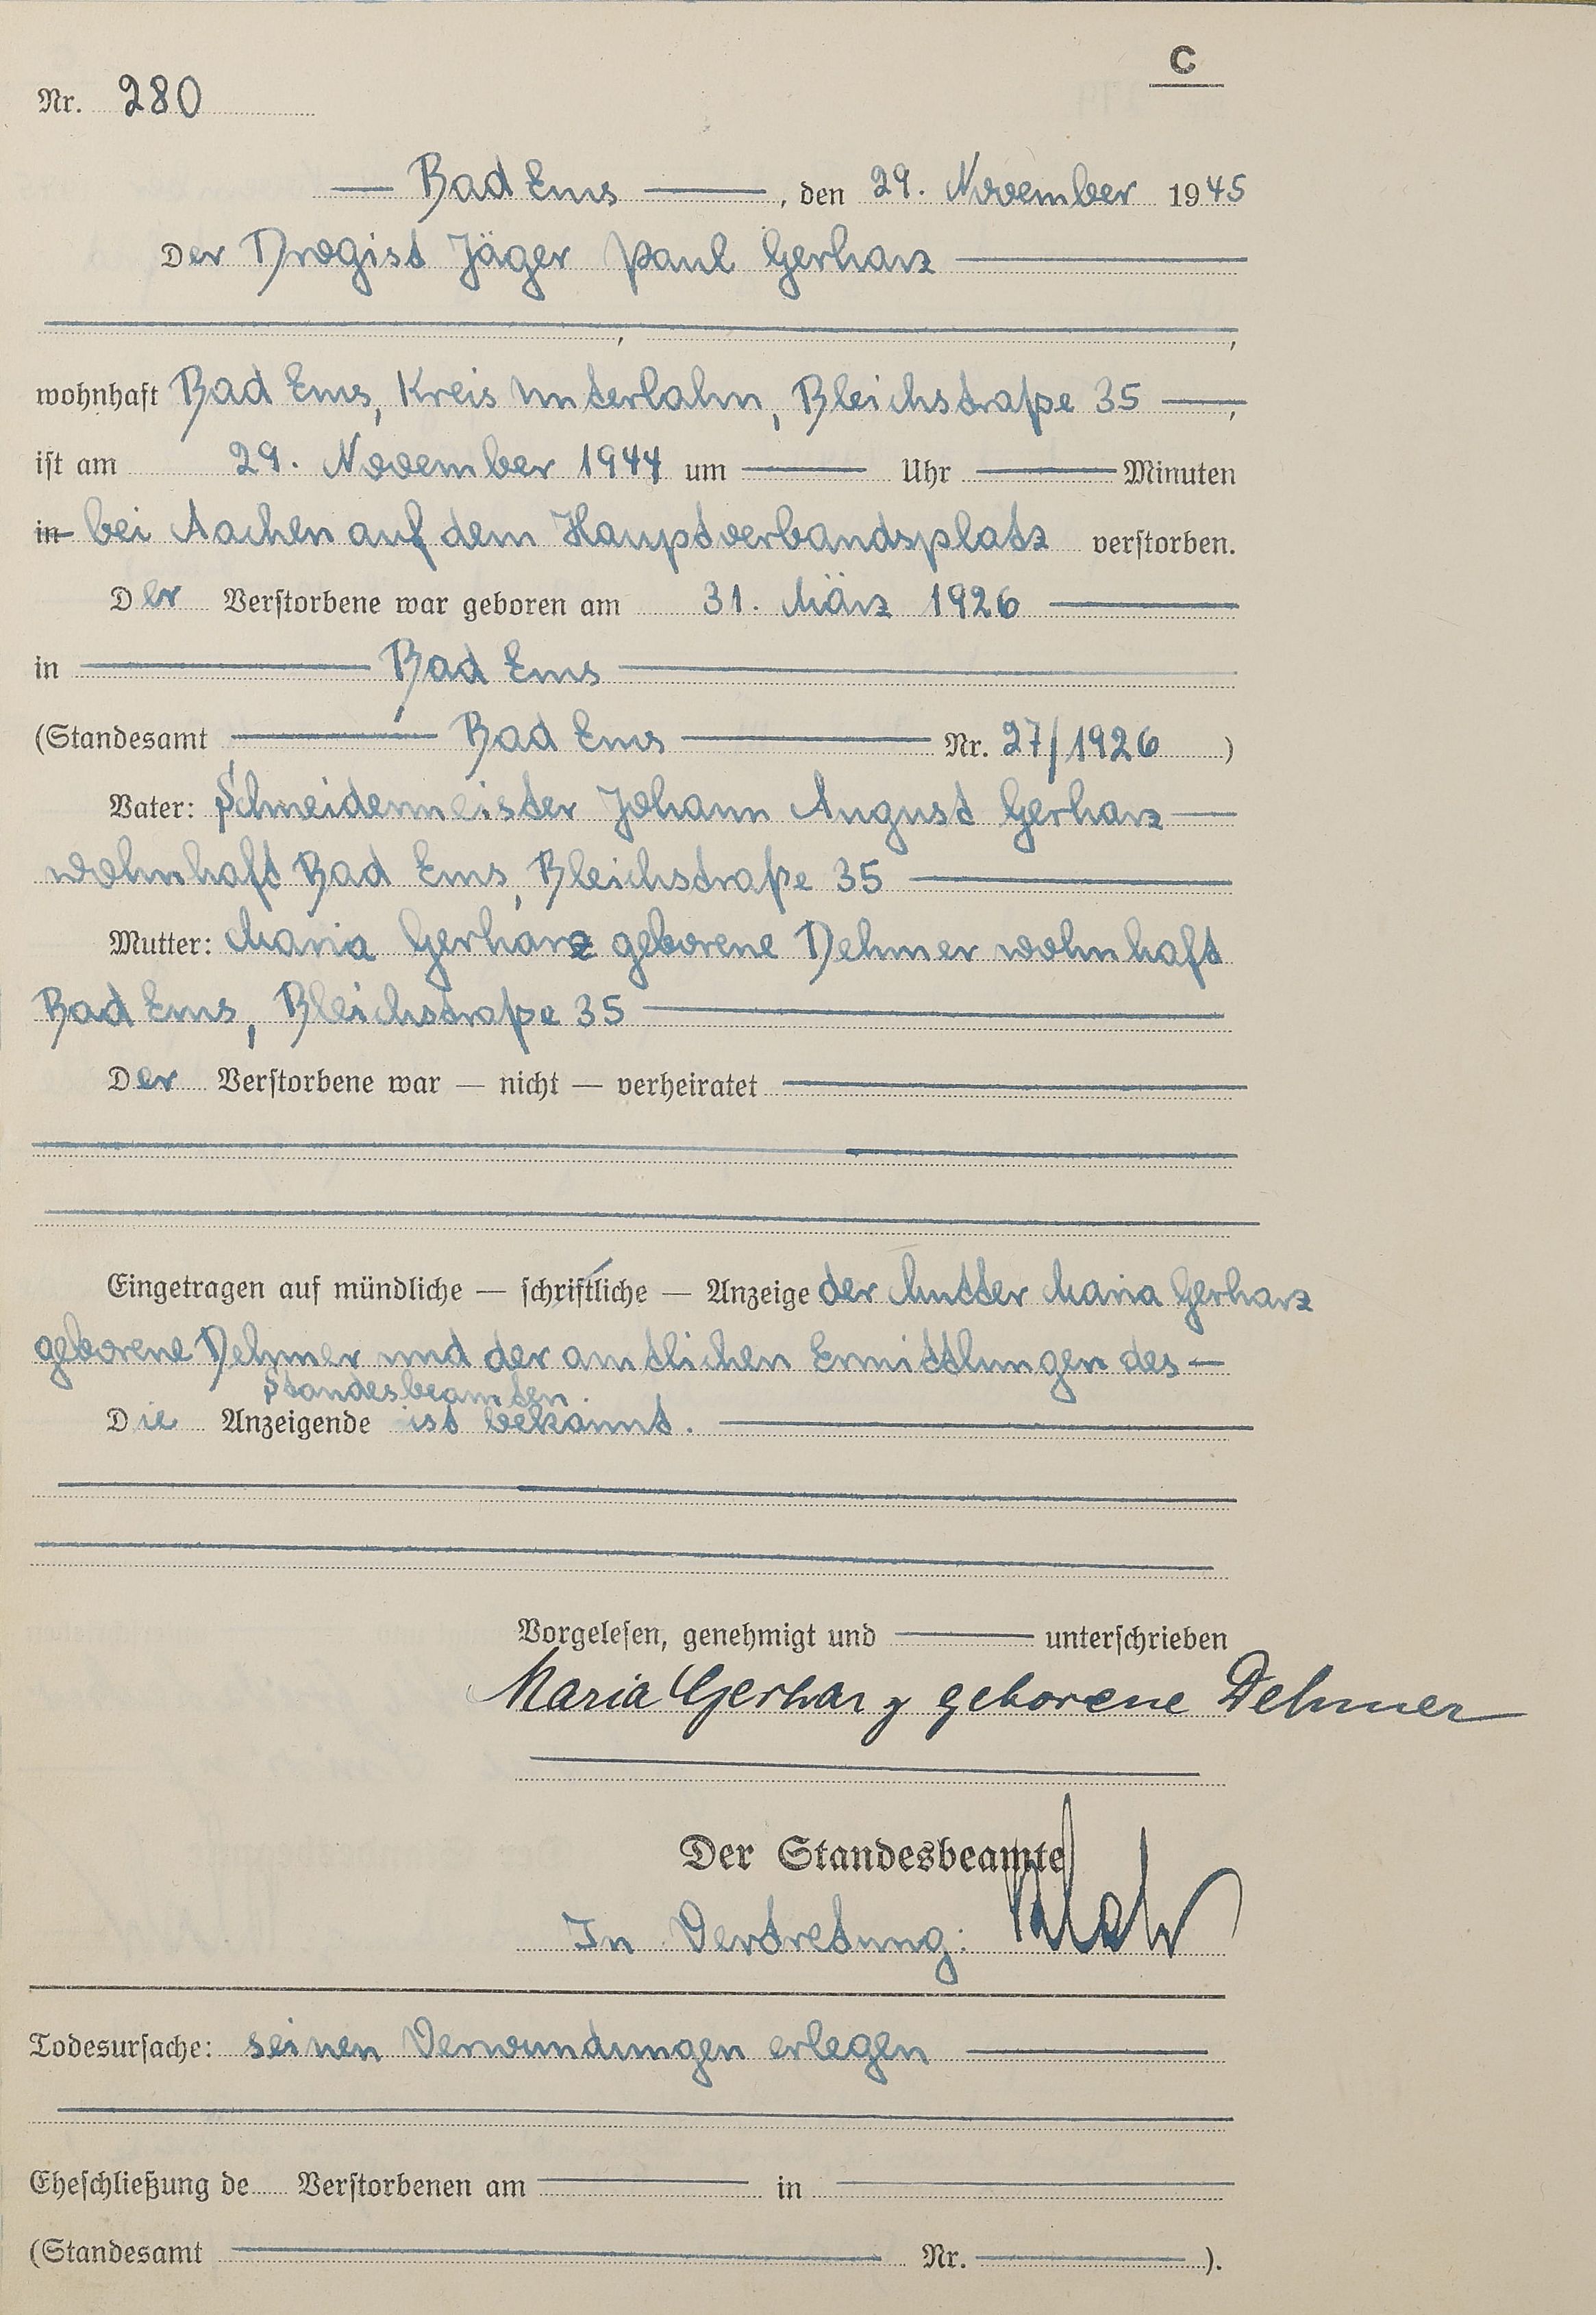 C
Nr. 280
Bad Ems, den 29. November 1945
Der Drogist Jäger Paul Gerharz
, ,
wohnhaft Bad Ems, Kreis Unterlahn, Bleichstraße 35,
ist am 29. November 1944 um Uhr Minuten
in bei Aachen auf dem Hauptverbandsplatz verstorben.
Der Verstorbene war geboren am 31. März 1926
in Bad Ems
(Standesamt Bad Ems Nr. 27/1926)
Vater: Schneidermeister Johann August Gerharz
wohnhaft Bad Ems, Bleichstraße 35
Mutter: Maria Gerharz geborene Dehmer wohnhaft
Bad Ems, Bleichstraße 35
Der Verstorbene war — nicht — verheiratet
Eingetragen auf mündliche — schriftliche — Anzeige der Mutter Maria Gerharz
geborene Dehmer und der amtlichen Ermittlungen des
Standesbeamten.
Die Anzeigende ist bekannt.
Vorgelesen, genehmigt und unterschrieben
Maria Gerharz geborene Dehmer
Der Standesbeamte
In Vertretung:
Todesursache: seinen Verwundungen erlegen
Eheschließung de Verstorbenen am in
(Standesamt Nr. ).